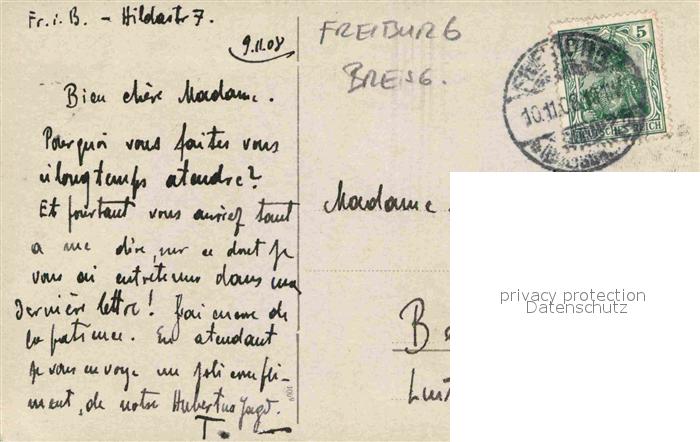 Fr. i. B. – Hildastr 7.
9.11.08
Bien chère Madame.
Pourquoi vous faites vous
si longtemps atendre?
Et pourtant vous auriez tant
a me dire, sur ce dont je
vous ai entretenus dans ma
dernière lettre! J'ai encore de
la patience. En atendant
je vous envoye un joli compli-
ment, de notre Hubertus Jagd.
T.
FREIBURG
BREISG.
10.11.08
5
DEUTSCHES REICH
Madame
B
Luit
privacy protection
Datenschutz